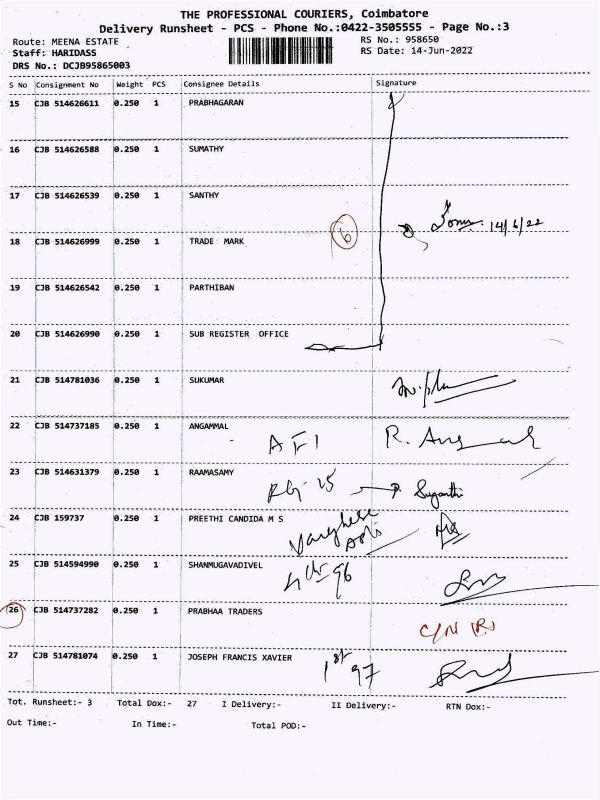 THE PROFESSIONAL COURIERS, Coimbatore
Delivery Runsheet - PCS - Phone No.:0422-3505555 - Page No.:3
Route: MEENA ESTATE
RS No.: 958650
Staff: HARIDASS
RS Date: 14-Jun-2022
DRS No.: DCJB95865003
S No Consignment No Weight PCS Consignee Details Signature
15 CJB 514626611 0.250 1 PRABHAGARAN
16 CJB 514626588 0.250 1 SUMATHY
17 CJB 514626539 0.250 1 SANTHY
6 14/6/22
18 CJB 514626999 0.250 1 TRADE MARK
19 CJB 514626542 0.250 1 PARTHIBAN
20 CJB 514626990 0.250 1 SUB REGISTER OFFICE
21 CJB 514781036 0.250 1 SUKUMAR
22 CJB 514737185 0.250 1 ANGAMMAL
23 CJB 514631379 0.250 1 RAAMASAMY
P. Suganthi
24 CJB 159737 0.250 1 PREETHI CANDIDA M S
Varghese
25 CJB 514594990 0.250 1 SHANMUGAVADIVEL
26 CJB 514737282 0.250 1 PRABHAA TRADERS
C/N (R)
27 CJB 514781074 0.250 1 JOSEPH FRANCIS XAVIER
1st 97
Tot. Runsheet:- 3 Total Dox:- 27 I Delivery:- II Delivery:- RTN Dox:-
Out Time:- In Time:- Total POD:-